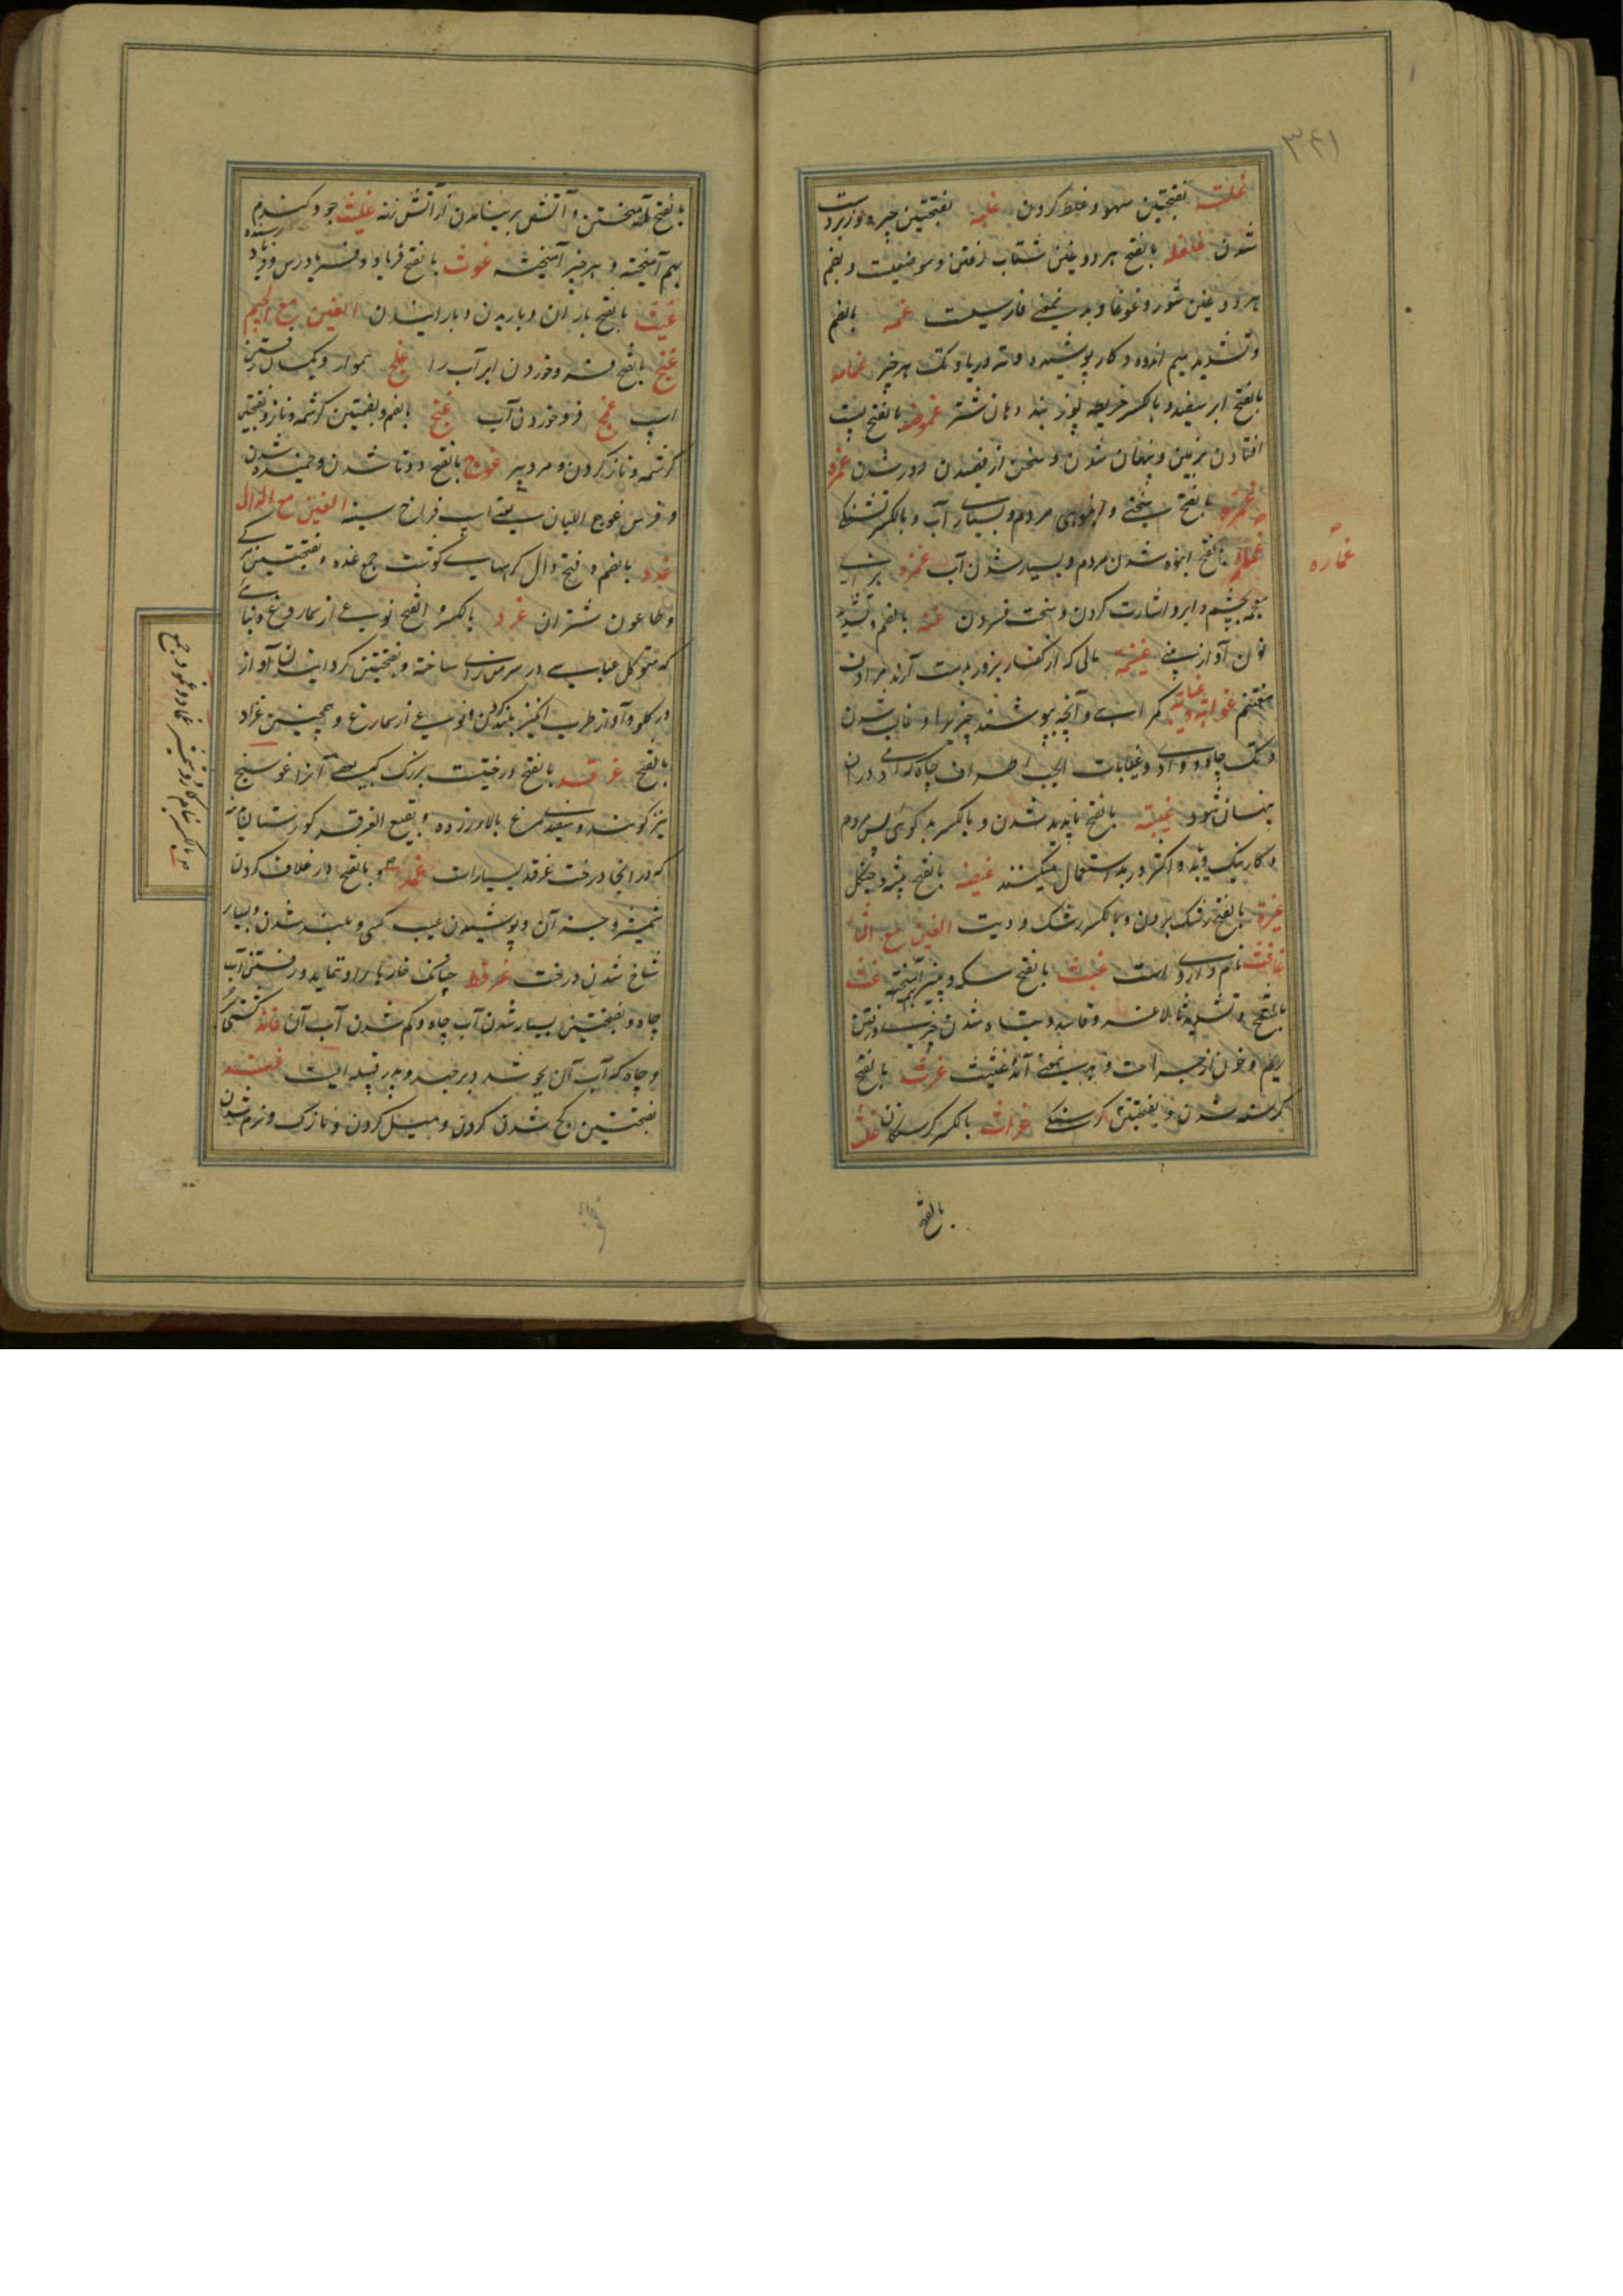 ۳۴۱
غلتة بفتحتین سهو و غلط کردن غلبه بفتحتین چیره و زبردست
شدن غلغله بالفتح هر دو غین شتاب رفتن و موضعیست و بضم
هر دو غین شور و غوغا و بدین معنی فارسیست غمه بالضم
و تشدید میم اندوه و کار پوشیده و ته دریا و تک هر چیز غمامه
بالفتح ابر سفید و بالکسر خریطه پوز بند دهان شتر غموضه بالفتح پست
افتادن زمین و پنهان شدن و سخن از فهمیدن دور شدن غمره
غمرة بالفتح سختی و انبوهی مردم و بسیاری آب و بالکسر تشنگی
غماره بالفتح انبوه شدن مردم و بسیار شدن آب غمزه برای
معجمه بچشم و ابرو اشارت کردن و سخت فشردن غنه بالضم و تشدید
نون آواز بینی غنیمة مالی که از کفار بزور بدست آرند مرادف
مغنم غوایة و غیایة گمراهی و آنچه بپوشند چیزیرا و غایب شدن
و تک چاه و وادی و غیابات الجب اطراف چاه که آدمی در آن
پنهان شود غیبة بالفتح ناپدید شدن و بالکسر بدگوئی پس مردم
و کار نیک و بد و اکثر در بد استعمال میکنند غیضه بالفتح بیشه و جنگل
غیرة بالفتح رشک بردن و بالکسر رشک و دیت الغین مع الثاء
غافث نام داروی است غبث بالفتح مسکه و پنیر بهم آمیخته غث
بالفتح و تشدید ثا لاغر و فاسد و تباه شدن چیزی و رفتن
ریم و خون از جراحت و بدین معنی آمده غثیث غرث بالفتح
گرسنه شدن و بفتحتین گرسنگی غراث بالکسر گرسنگان غلث
بالفتح
غماره
بالفتح آمیختن و آتش بر نیامدن از آتش زنه غلیث جو و گندم
بهم آمیخته و هر چیز آمیخته غوث بالفتح فریاد و فریادرس و فریاد رسنده
غیث بالفتح باران و باریدن و بارانیدن الغین مع الجیم
غبج بالفتح فرو خوردن ابر آب را غلج هموار و یکسان رفتن
اسپ غمج فرو خوردن آب غنج بالضم و بضمتین کرشمه و ناز و بفتحتین
کرشمه و ناز کردن و مرد پیر غوج بالفتح دوتا شدن و خمیده شدن
و فرس غوج اللبان یعنی اسپ فراخ سینه الغین مع الدال
غدد بالضم و فتح دال گرههای گوشت جمع غده و بفتحتین مرگی
و طاعون شتران غرد بالکسر و الفتح نوعی از سماروغ و بنای
که متوکل عباسی در سرمن رای ساخته و بفتحتین گردانیدن آواز
در گلو و آواز طرب انگیز بلند کردن و نوعی از سماروغ و همچنین غراد
بالفتح غرقد بالفتح درختیست بزرگ که بعضی آنرا عوسج
نیز گویند و سفیدی تخم مرغ بالای زرده و بقیع الغرقد گورستان مدینه
که در آنجا درخت غرقد بسیار است غمد بالفتح در غلاف کردن
شمشیر و جز آن و پوشیدن عیب کسی و بلند شدن و بسیار
شاخ شدن درخت غرفط چنانکه خارها را و نماید و رفتن آب
چاه و بفتحتین بسیار شدن آب چاه و کم شدن آب آن غامد کشتی
و چاه که آب آن بجوشد و برخیزد و پدر قبیله ایست غید
بفتحتین کج شدن گردن و میل کردن و نازک و نرم شدن